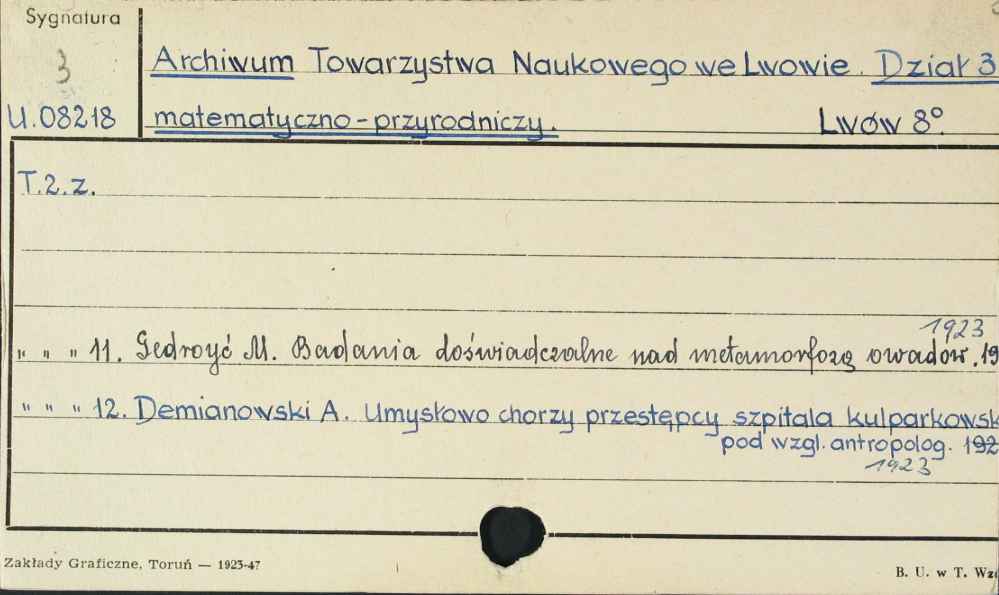 Sygnatura
3
U.08218
Archiwum Towarzystwa Naukowego we Lwowie. Dział 3
matematyczno-przyrodniczy. Lwów 8°.
T.2.z.
1923
„ „ „ 11. Gedroyć M. Badania doświadczalne nad metamorfozą owadów. 19
„ „ „ 12. Demianowski A. Umysłowo chorzy przestępcy szpitala kulparkowsk
pod wzgl. antropolog. 192
1923
Zakłady Graficzne, Toruń — 1923-47
B. U. w T. Wzó